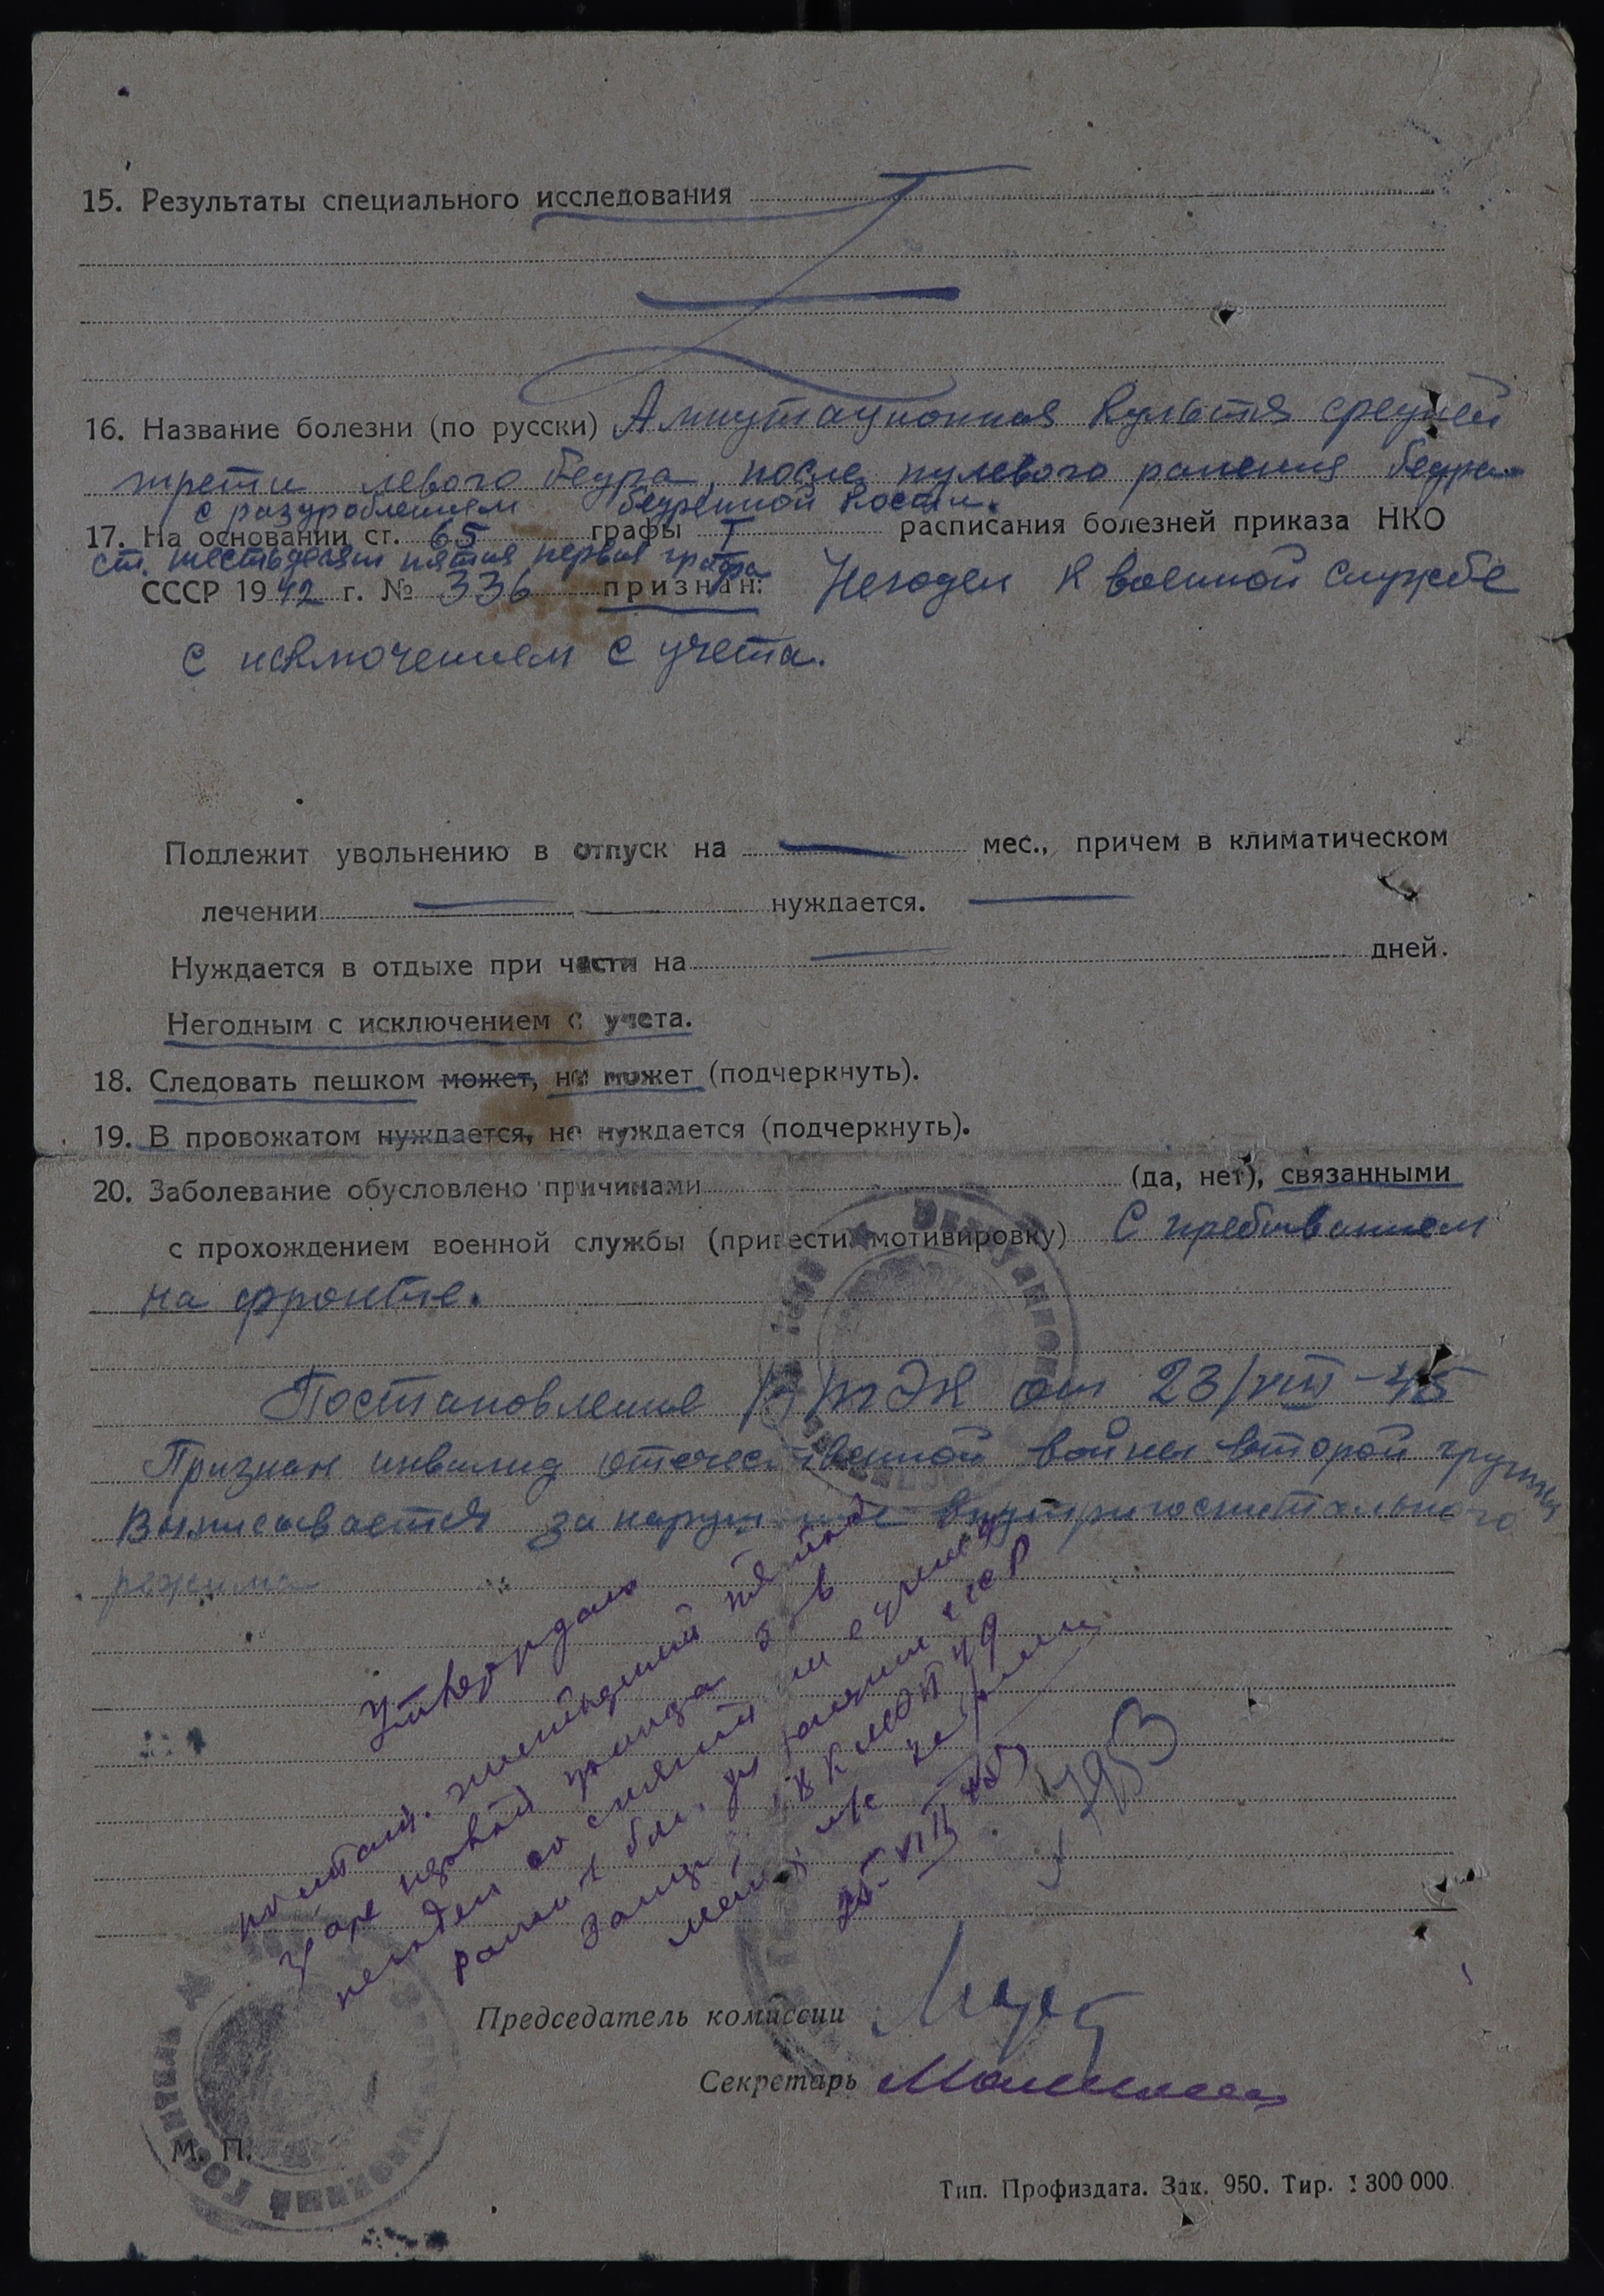 15. Результаты специального исследования
16. Название болезни (по русски) Ампутационная культя средней
трети левого бедра, после пулевого ранения бедра
с раздроблением бедренной кости.
17. На основании ст. 65 графы I расписания болезней приказа НКО
ст. шестьдесят пятая первая графа
СССР 1942 г. № 336 признан: Негоден к военной службе
с исключением с учета.
Подлежит увольнению в отпуск на мес., причем в климатическом
лечении нуждается.
Нуждается в отдыхе при части на дней.
Негодным с исключением с учета.
18. Следовать пешком может, не может (подчеркнуть).
19. В провожатом нуждается, не нуждается (подчеркнуть).
20. Заболевание обусловлено причинами (да, нет), связанными
с прохождением военной службы (привести мотивировку) С пребыванием
на фронте.
Постановление от 23/VIII-45
Признан инвалид отечественной войны второй группы
Выписывается за нарушение внутригоспитального
режима
Утверждаю
негоден со снятием с учета
25.VIII 45
1953
Председатель комиссии
Секретарь
М. П.
Тип. Профиздата. Зак. 950. Тир. 1 300 000